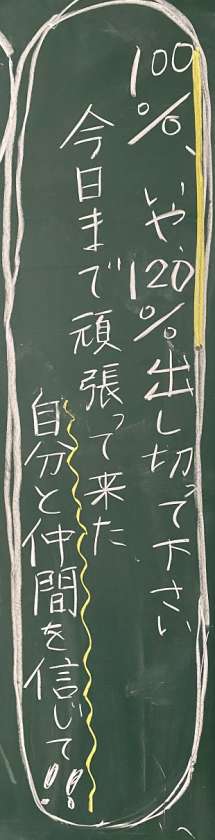 100%、いや、120%出し切って下さい
今日まで頑張って来た
自分と仲間を信じて!!